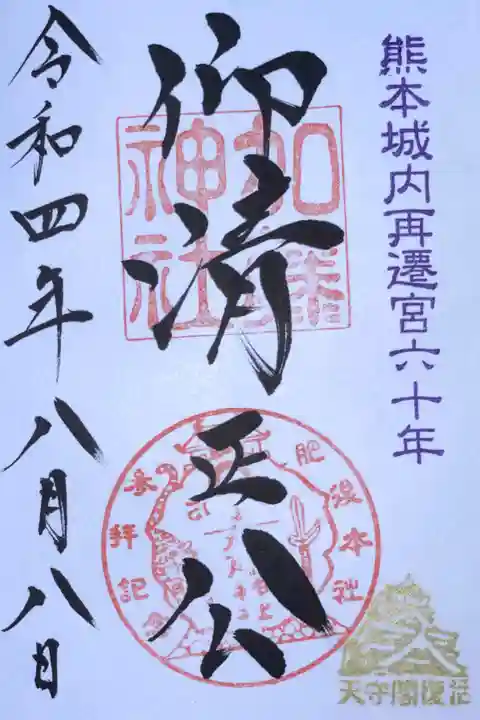 熊本城内再遷宮六十年
仰清正公
加藤神社
肥後本社
参拝記念
天守閣復活
令和四年八月八日